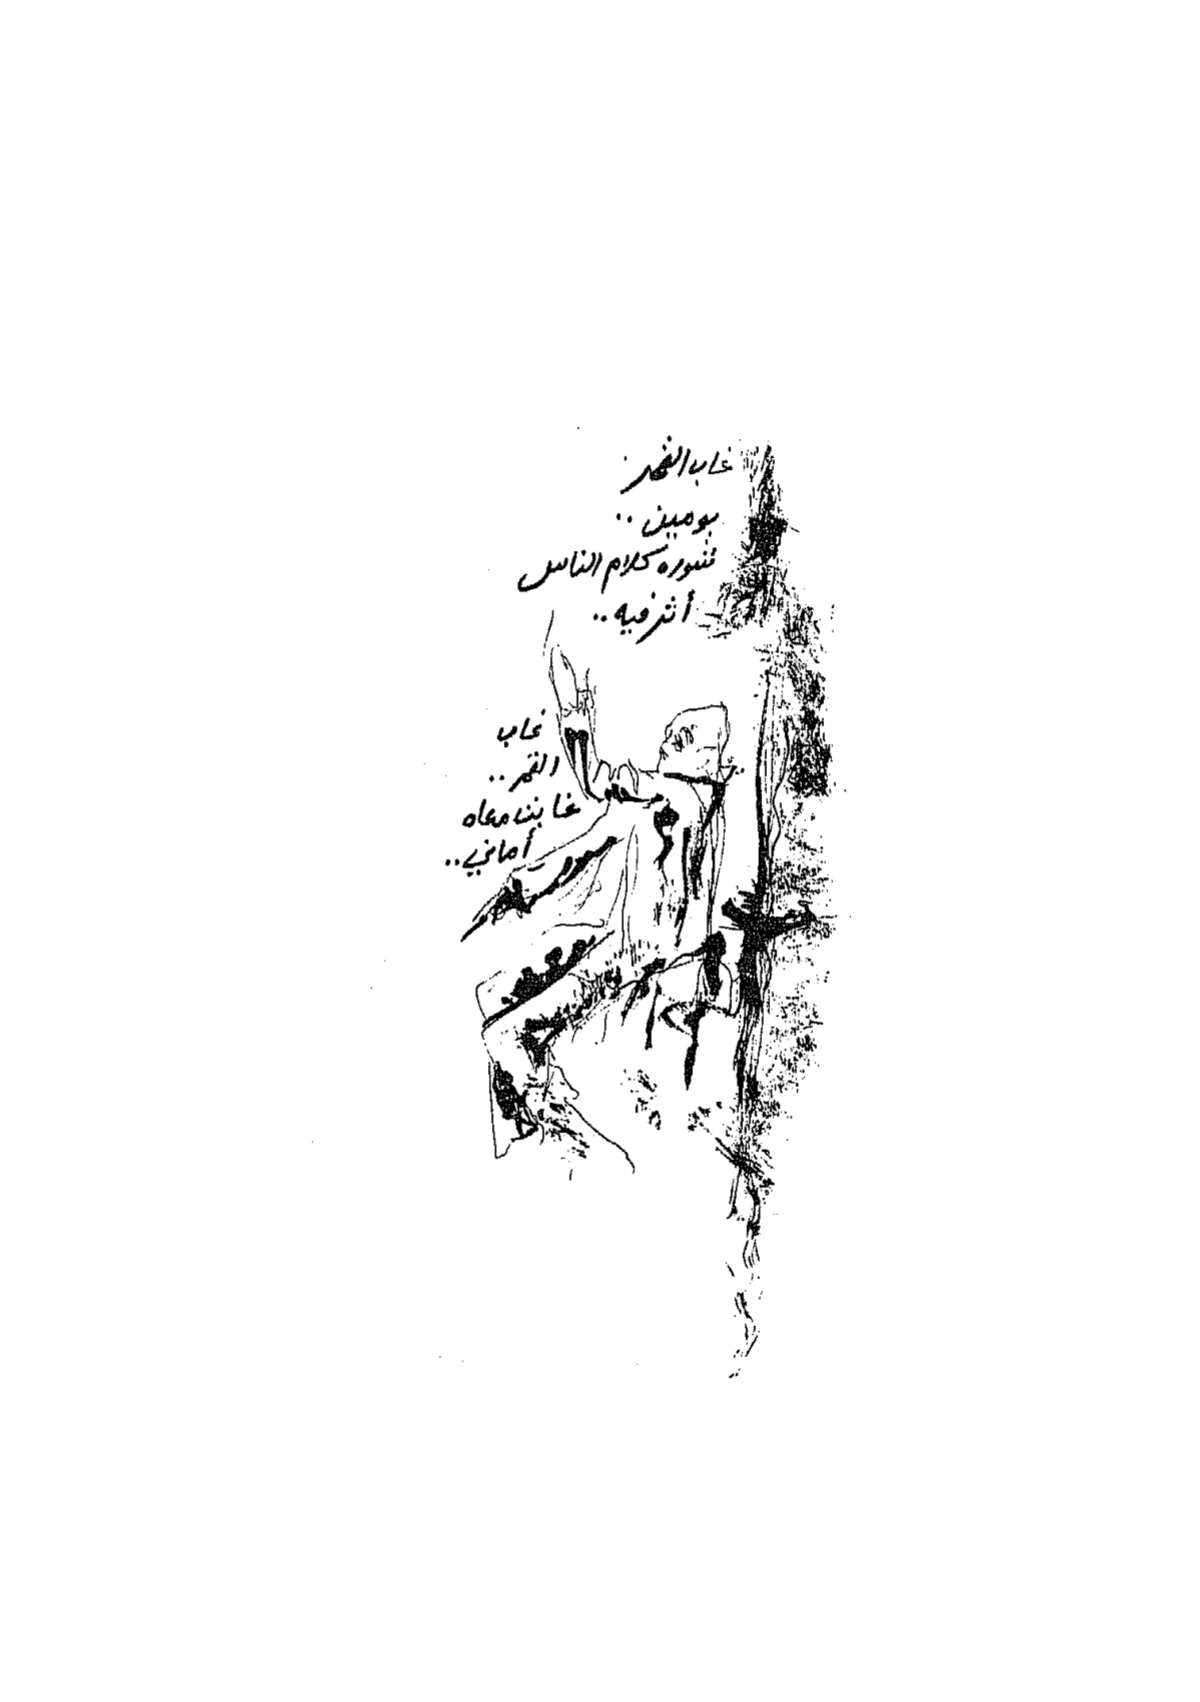 غاب القمر
يومين ..
شوره كلام الناس
أثر فيه ..
غاب
القمر ..
غابت معاه
أماني ..